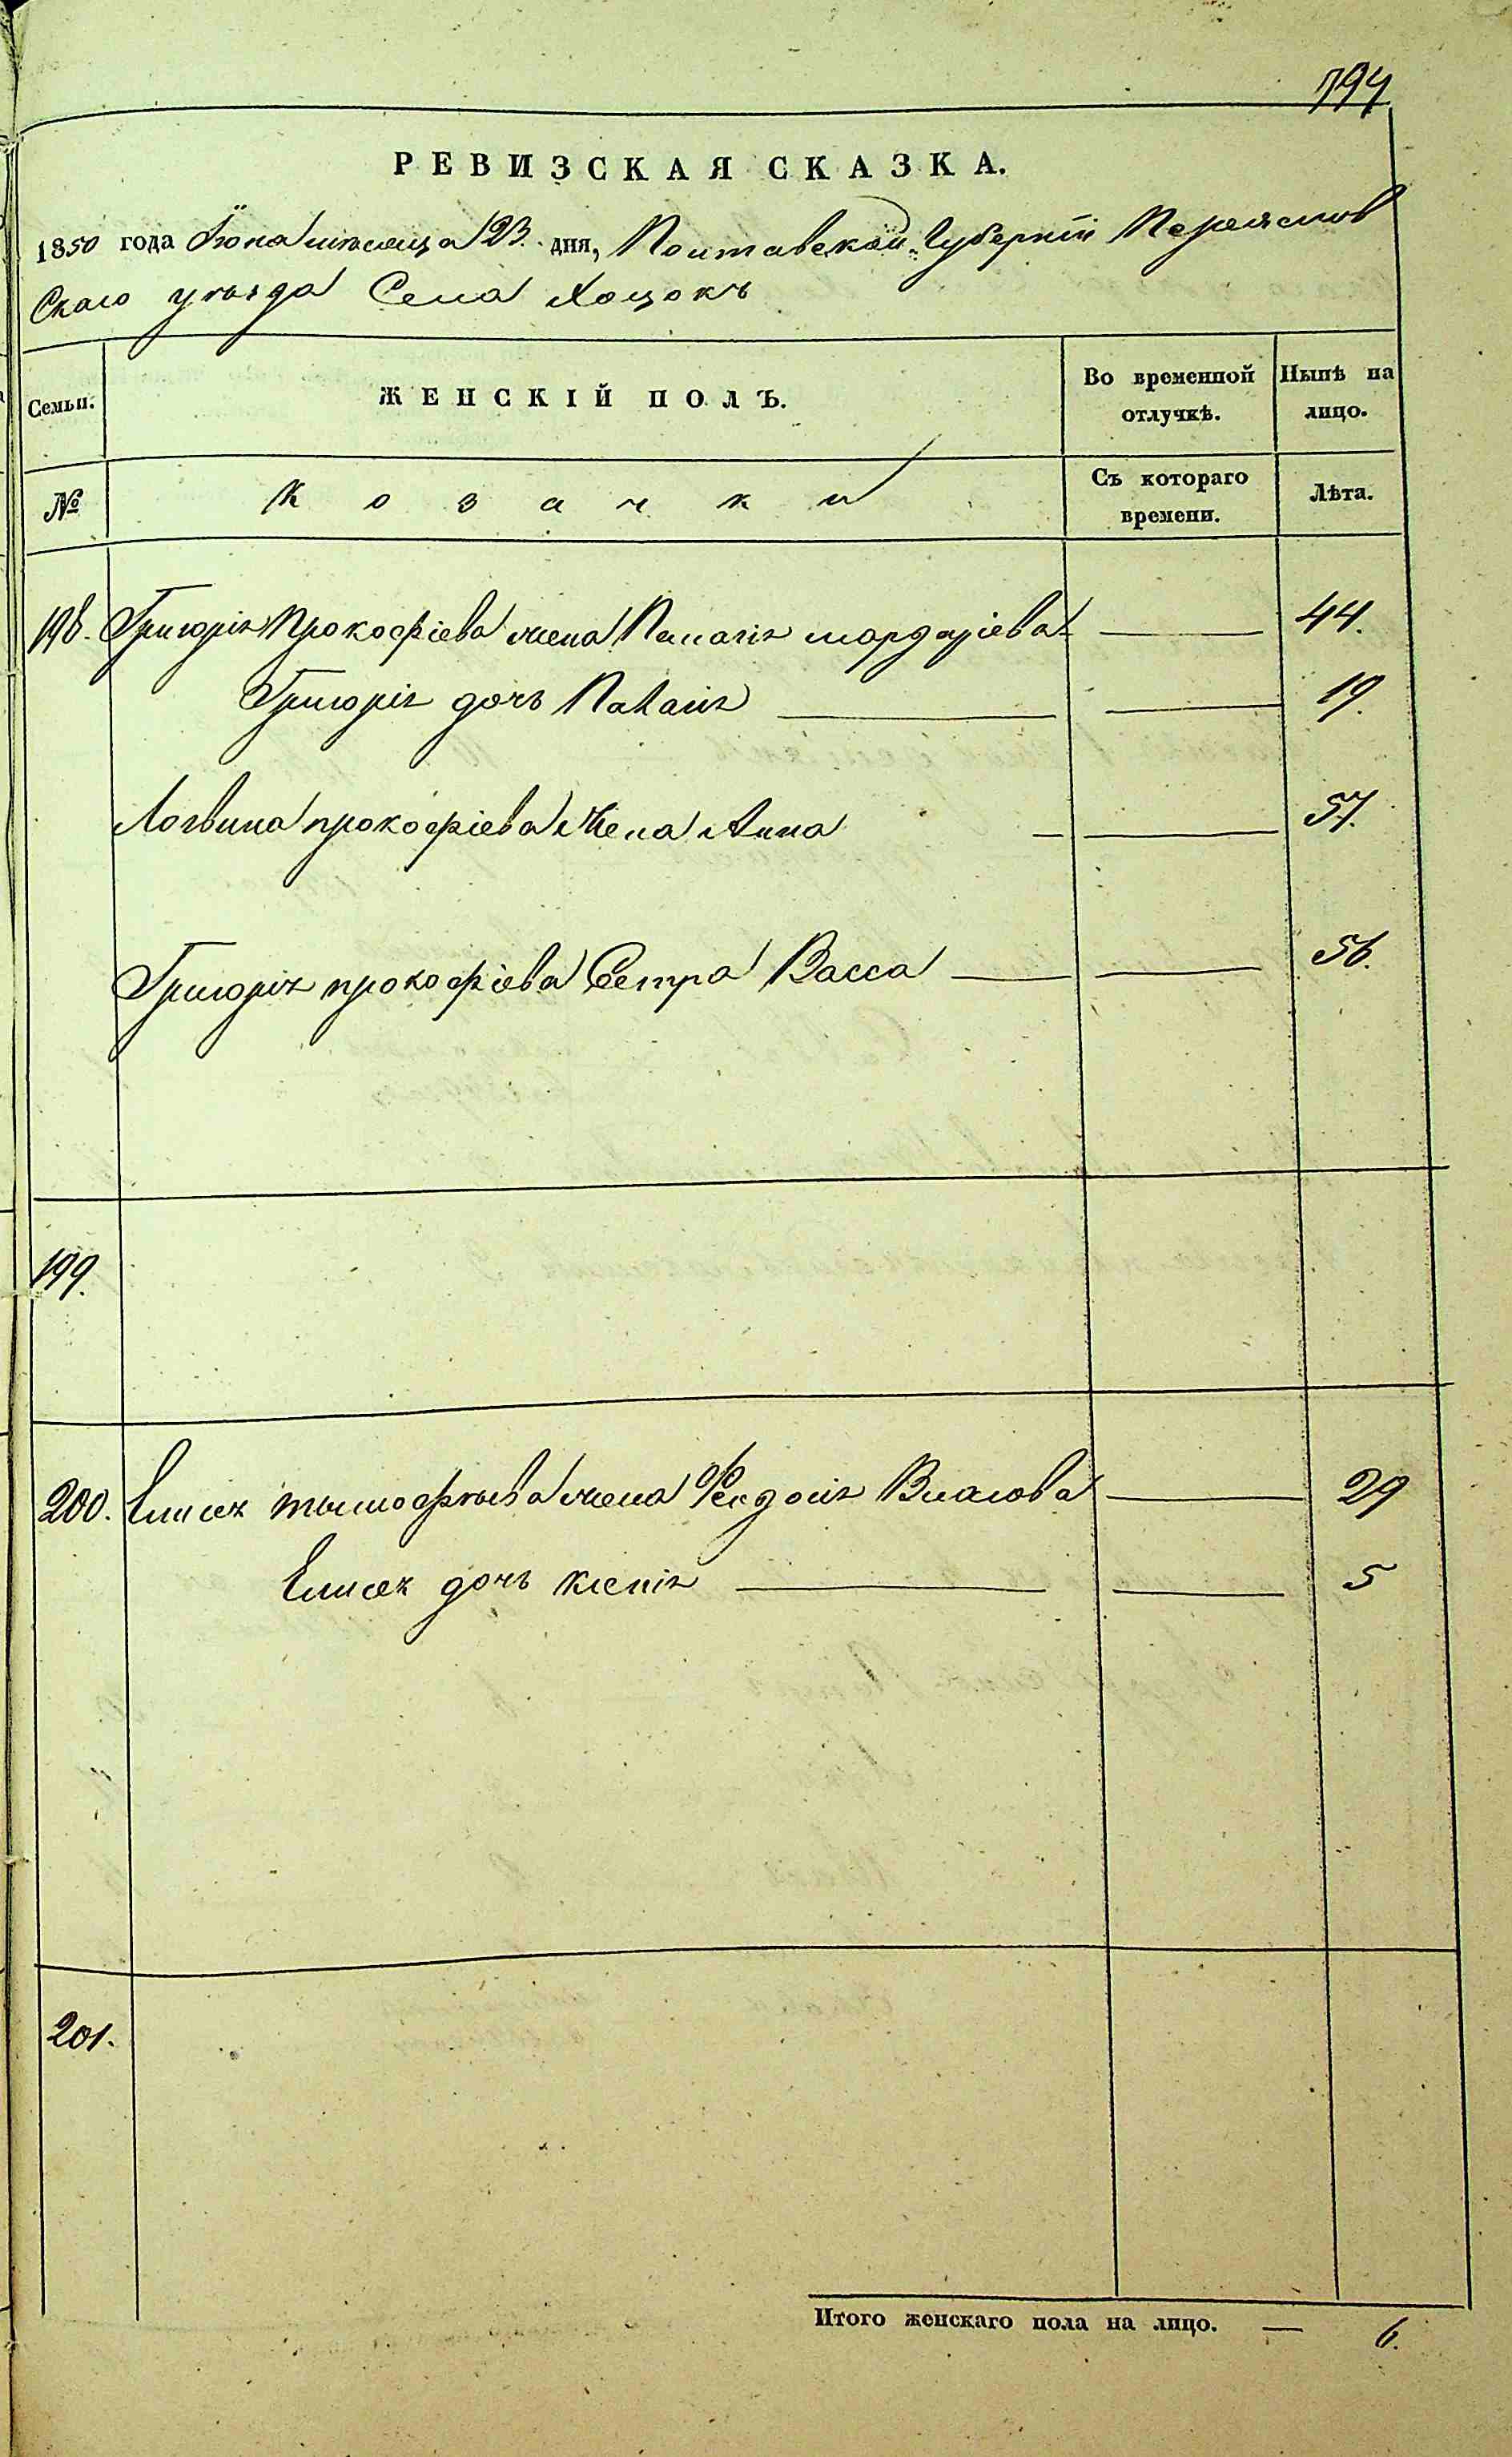 794
РЕВИЗСКАЯ СКАЗКА.
1850 года Іюня мѣсяца 23. дня, Полтавской Губерніи Переяслов
скаго уѣзда Села Хоцокъ
Семьи. ЖЕНСКІЙ ПОЛЪ. Во временной отлучкѣ. Нынѣ на лицо.
№ Козачки Съ котораго времени. Лѣта.
198. Григорія Прокофіева жена Палагія Мордаріева — 44.
Григорія дочь — 19.
Логвина прокофіева жена Анна — — 57.
Григорія прокофіева Сестра Васса — — 56.
199.
200. Елисея тимофѣева жена Феодосія Власова — 29
Елисея дочь — — 5
201.
Итого женскаго пола на лицо. — 6.